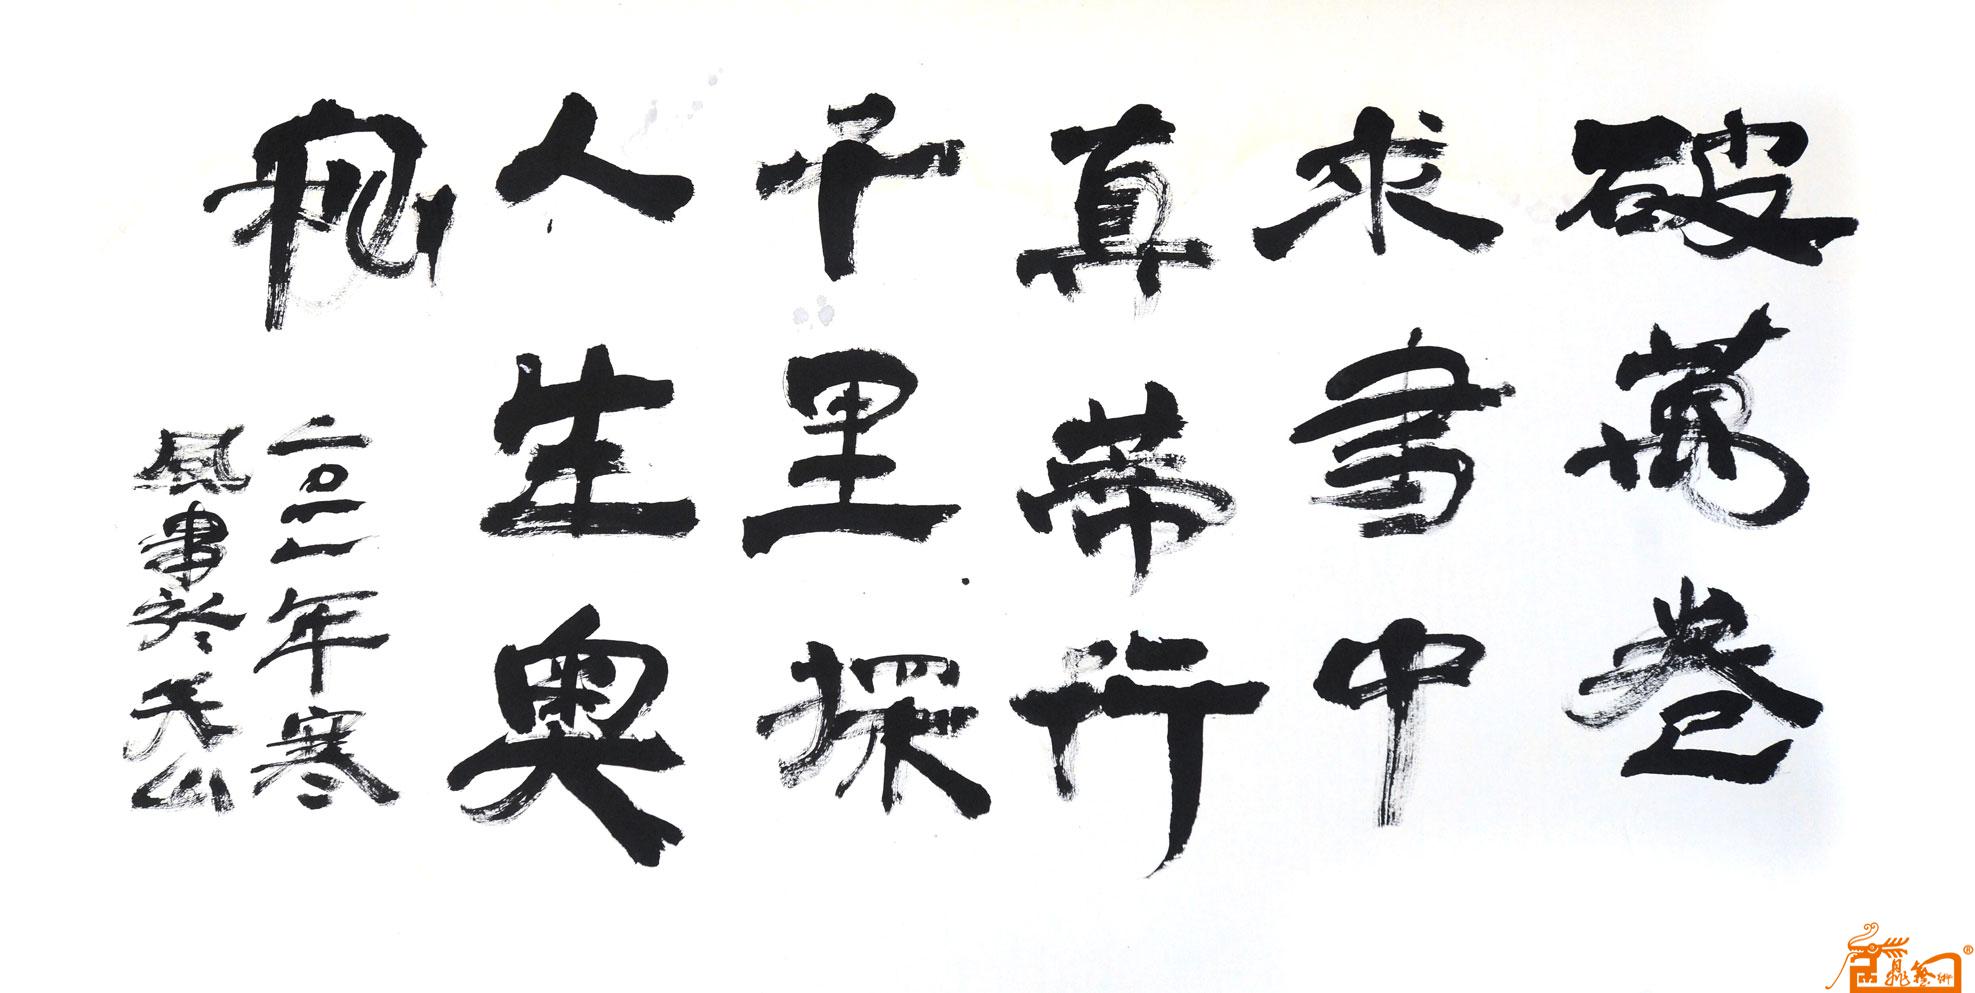 破萬卷
求書中
真蒂行
千里探
人生奥
秘
二〇一一年寒
風書於天山